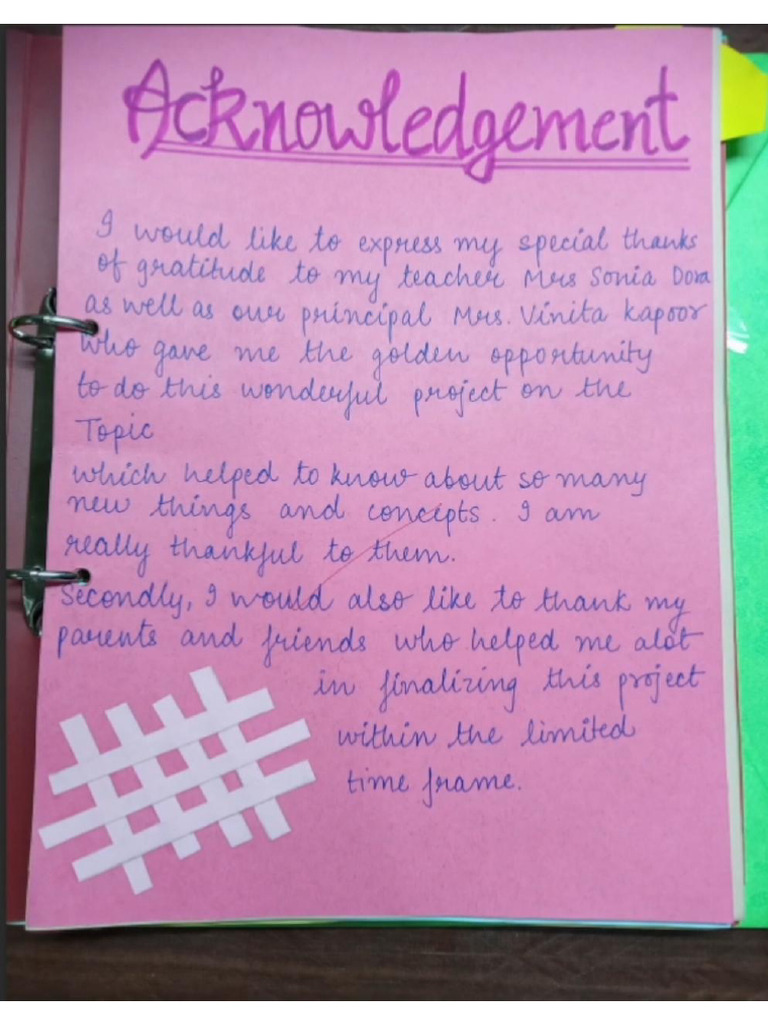 Acknowledgement
I would like to express my special thanks
of gratitude to my teacher Mrs Sonia Dora
as well as our principal Mrs. Vinita kapoor
who gave me the golden opportunity
to do this wonderful project on the
Topic
which helped to know about so many
new things and concepts. I am
really thankful to them.
Secondly, I would also like to thank my
parents and friends who helped me alot
in finalizing this project
within the limited
time frame.